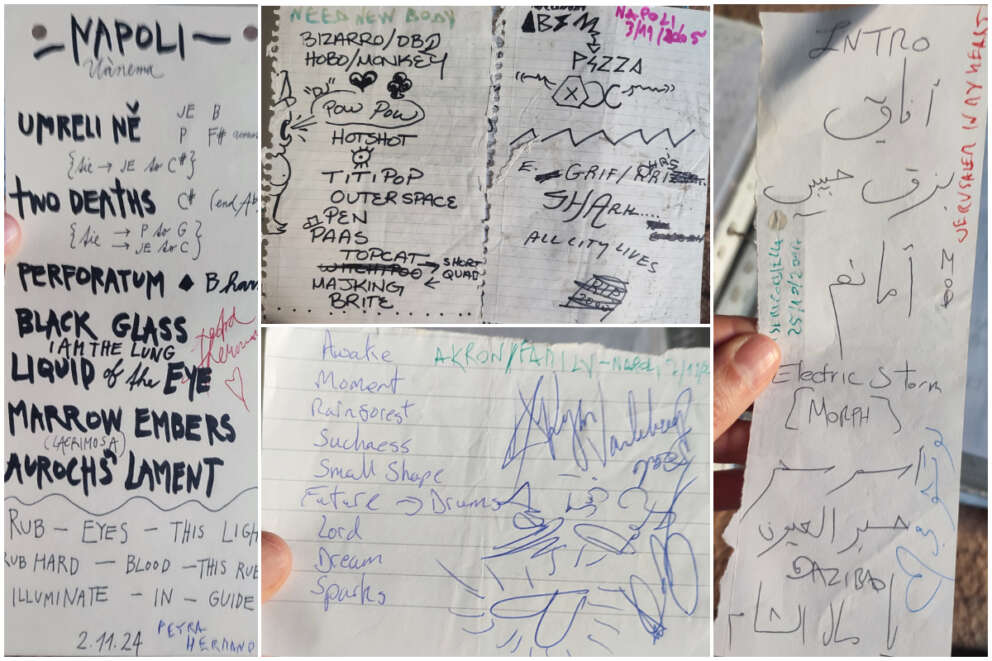 NAPOLI
Uànema
UMRELI NĚ
JE B
P F#
{Sie → JE to C#}
TWO DEATHS C# (end Ab
{Sie → P to G
→ JE to C}
PERFORATUM ◆ B
BLACK GLASS
I AM THE LUNG
LIQUID of the EYE
MARROW EMBERS
(LACRIMOSA)
AUROCHS LAMENT
RUB – EYES – THIS LIGH
RUB HARD – BLOOD – THIS RUB
ILLUMINATE – IN – GUIDE
2.11.24
PETRA
HERMANO
NEED NEW BODY
BIZARRO/DBD
HOBO/MONKEY
"DJ"
POW POW
HOTSHOT
TITIPOP
OUTERSPACE
PEN
PAAS
TOPCAT
SHORT
QUAD
MAJKING
BRITE
NAPOLI
3/11/2005
PIZZA
X
E. GRIF/
SHARK....
ALL CITY LIVES
AKRON/FAMILY – NAPOLI
Awake
Moment
Rainforest
Suchness
Small Shape
Future → Drums
Lord
Dream
Sparks
INTRO
آفاق
نزق حبيبي
JERUSALEM IN MY HEART
25/10/2014
Electric Storm
[MORPH]
حبر العيون
GAZIBAD
يا مال الشام